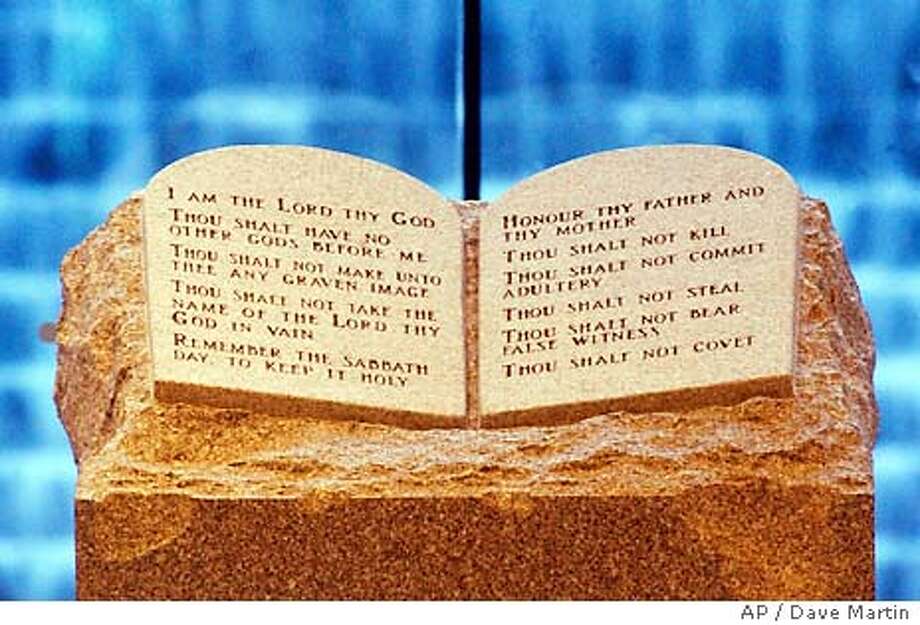 I am the Lord thy God
Thou shalt have no
other gods before me
Thou shalt not make unto
thee any graven image
Thou shalt not take the
name of the Lord thy
God in vain
Remember the Sabbath
day, to keep it holy
Honour thy father and
thy mother
Thou shalt not kill
Thou shalt not commit
adultery
Thou shalt not steal
Thou shalt not bear
false witness
Thou shalt not covet
AP / Dave Martin